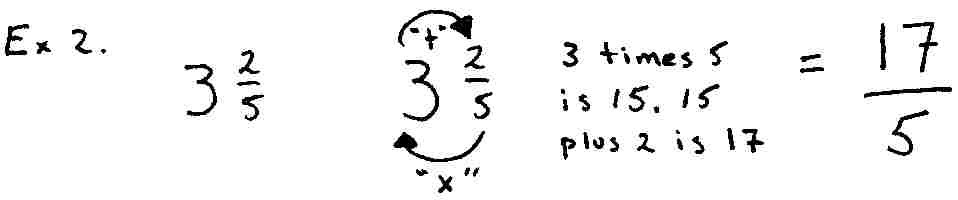 Ex 2.
3 2/5
"+"
3 2/5
"x"
3 times 5
is 15. 15
plus 2 is 17
= 17/5